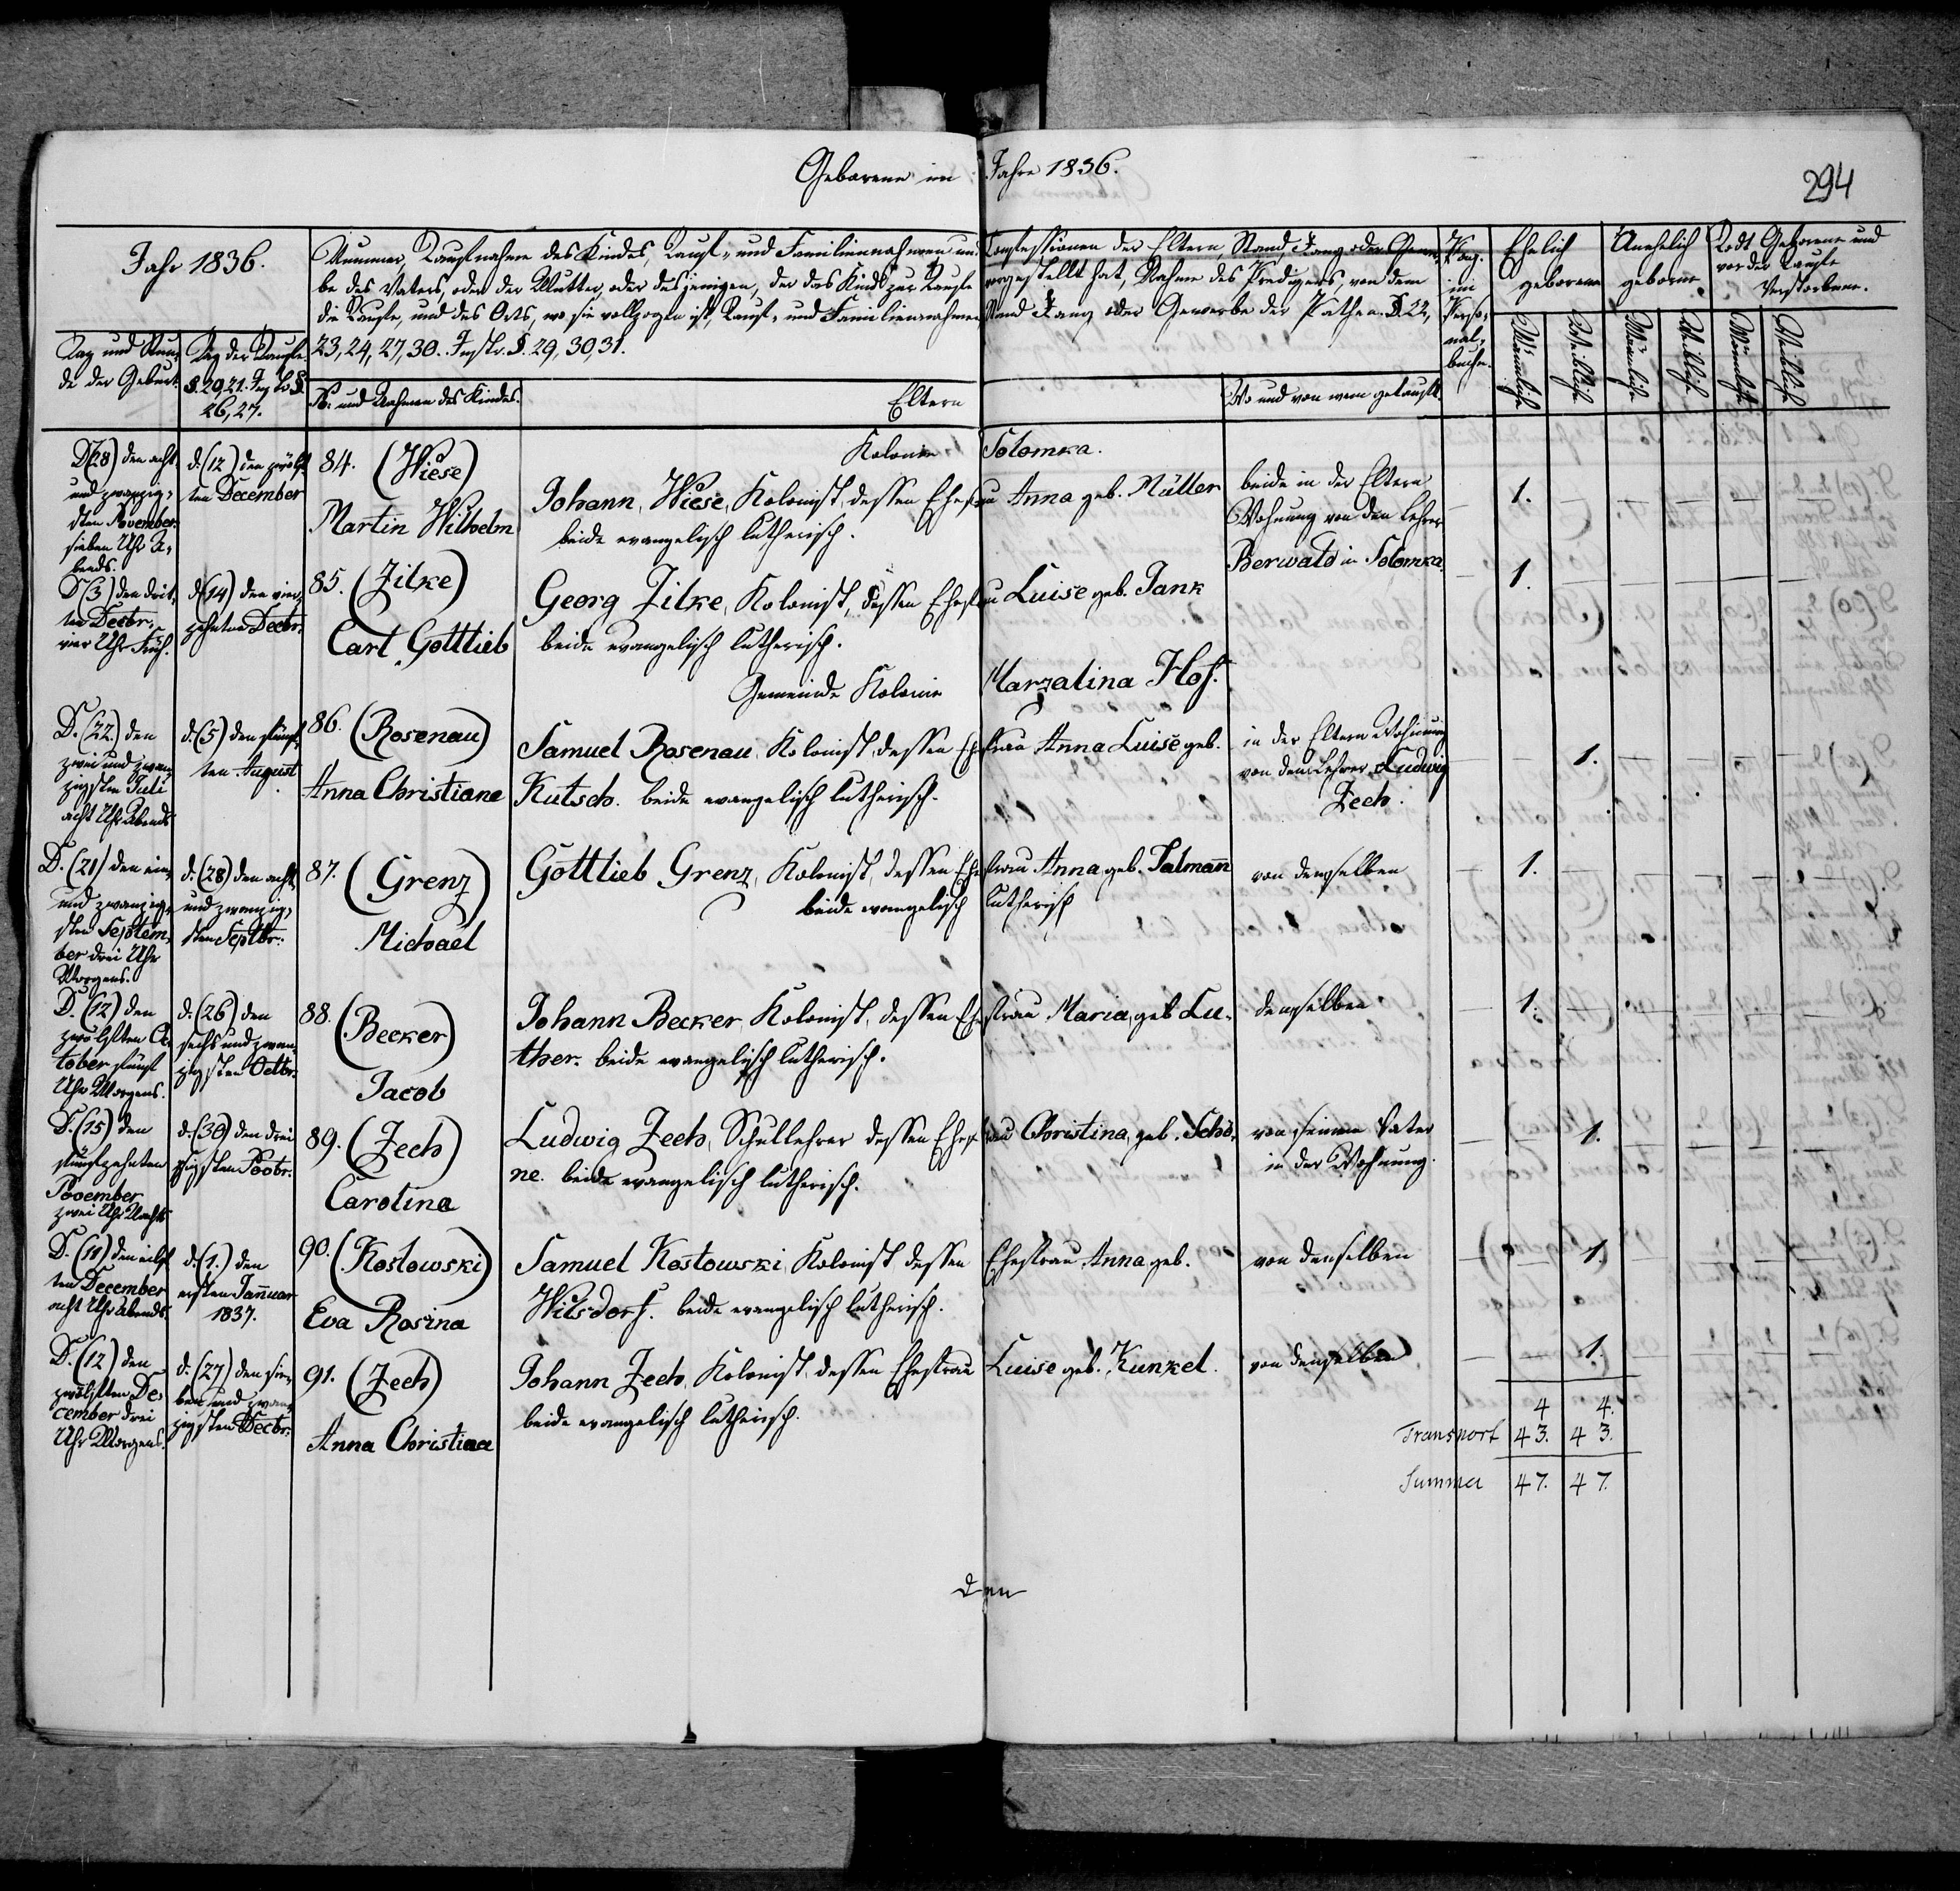 Geborene im Jahre 1836.
294
Jahr 1836.
Nummer, Taufnahme des Kindes, Tauf- und Familiennahmen und Confessionen der Eltern, Stand, Rang oder Gewer-
be des Vaters, oder der Mutter, oder desjenigen, der das Kind zur Taufe vorgestellt hat, Nahme des Predigers, von dem
die Taufe, und des Orts, wo sie vollzogen ist, Tauf- und Familiennahmen Stand Rang oder Gewerbe der Pathen. §. 22,
23, 24, 27, 30. Instr. §. 29, 30, 31.
Pag.
im
Perso-
nal-
buche.
Ehelich
geborene
Unehelich
geborene
Todt Geborene und
vor der Taufe
Verstorbene.
Tag und Stun-
de der Geburt.
Tag der Taufe.
§. 20, 21. Instr. §.
26, 27.
No. und Nahmen des Kindes.
Eltern
Wo und von wem getauft.
Männliche
Weibliche
Männliche
Weibliche
Männliche
Weibliche
Kolonie Solomka.
D. (28) den acht
und zwanzig-
sten November
sieben Uhr A-
bends.
d. (12) den zwölf-
ten December
84. (Wiese)
Martin Wilhelm
Johann Wiese, Kolonist, dessen Ehefrau Anna geb. Müller
beide evangelisch lutherisch.
beide in der Eltern
Wohnung von den Lehrer
Berwald in Solomka.
1.
D. (3) den drit-
ten Decbr.
vier Uhr Früh.
d. (14) den vier-
zehnten Decbr.
85. (Zilke)
Carl Gottlieb
Georg Zilke, Kolonist, dessen Ehefrau Luise geb. Jank
beide evangelisch lutherisch.
1.
Gemeinde Kolonie Marzalina Hof.
D. (22.) den
zwei und zwan-
zigsten Juli
acht Uhr Abends
d. (5) den fünf-
ten August
86. (Rosenau)
Anna Christiane
Samuel Rosenau, Kolonist, dessen Ehefrau Anna Luise geb.
Kutsch. beide evangelisch lutherisch.
in der Eltern Wohnung
von dem Lehrer Ludwig
Zech.
1.
D. (21) den ein
und zwanzig-
sten Septem-
ber drei Uhr
Morgens.
d. (28) den acht
und zwanzig-
sten Septbr.
87. (Grenz)
Michael
Gottlieb Grenz, Kolonist, dessen Ehefrau Anna geb. Talmann
beide evangelisch lutherisch
von demselben
1.
D. (12) den
zwölften Oc-
tober fünf
Uhr Morgens.
d. (26) den
sechs und zwan-
zigsten Octbr.
88. (Becker)
Jacob
Johann Becker, Kolonist, dessen Ehefrau Maria, geb. Lu-
ther. beide evangelisch lutherisch.
demselben
1.
D. (15) den
fünfzehnten
November
zwei Uhr Nachts
d. (30) den drei
zigsten Novbr.
89. (Zech)
Carolina
Ludwig Zech, Schullehrer dessen Ehefrau Christina, geb. Schö-
ne. beide evangelisch lutherisch.
von seinem Vater
in der Wohnung.
1.
D. (11) den eilf-
ten December
acht Uhr Abends.
d. (1.) den
ersten Januar
1837.
90. (Koslowski)
Eva Rosina
Samuel Koslowski, Kolonist dessen Ehefrau Anna geb.
Wilsdorf. beide evangelisch lutherisch.
von denselben
1.
D. (12) den
zwölften De-
cember drei
Uhr Morgens.
d. (27) den sie-
ben und zwan-
zigsten Decbr.
91. (Zech)
Anna Christina
Johann Zech, Kolonist, dessen Ehefrau Luise geb. Kunkel.
beide evangelisch lutherisch.
von demselben
1.
4 4.
Transport 43. 43.
Summa 47. 47.
den